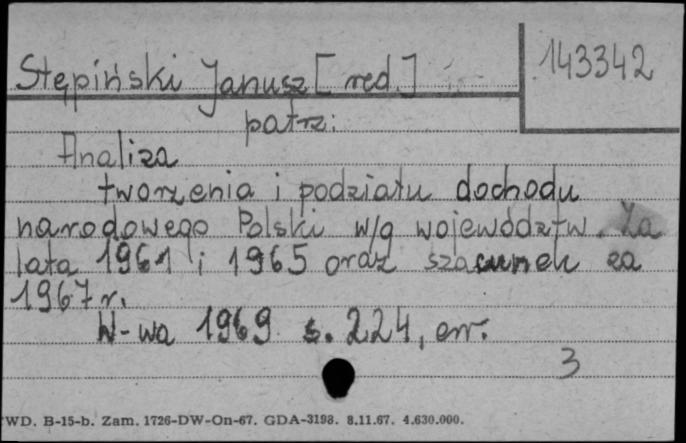 143342
Stępiński Janusz [red.]
patrz:
Analiza
tworzenia i podziału dochodu
narodowego Polski w/g województw. Za
lata 1961 i 1965 oraz szacunek za
1967 r.
W-wa 1969 s. 224, err.
3
WD. B-15-b. Zam. 1726-DW-On-67. GDA-3198. 8.11.67. 4.630.000.